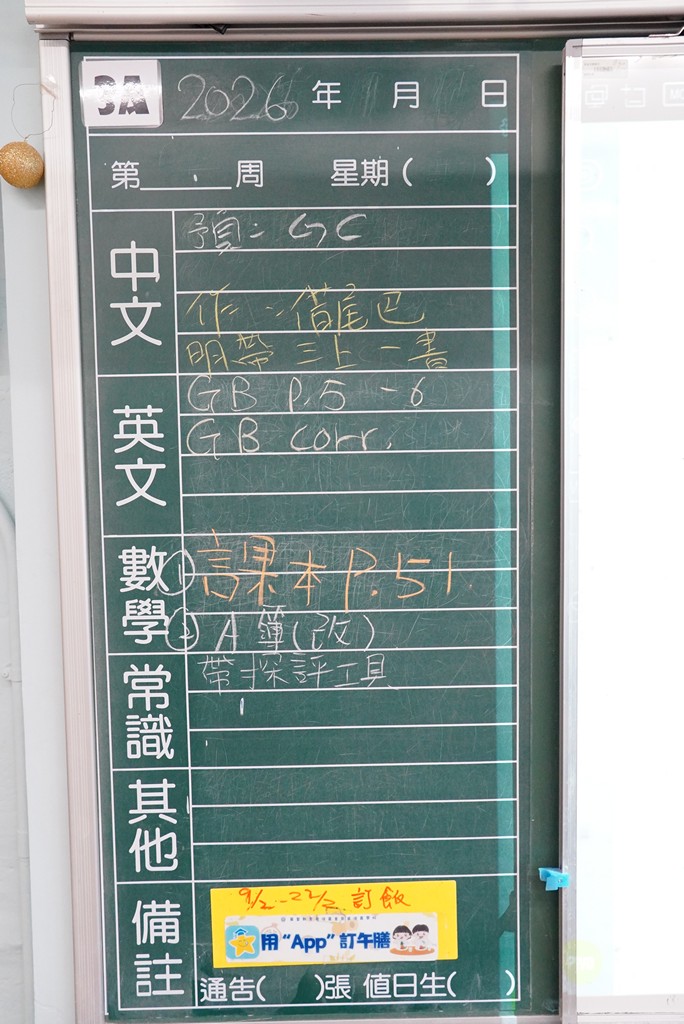 3A 2026 年 月 日
第 周 星期( )
中文
預: GC
作:借尾巴
明帶 三上一書
英文
GB P.5-6
GB corr.
數學
① 課本 P.51
② A簿(改)
常識
帶探評工具
其他
備註
9/2-22/2 訂飯
用“App”訂午膳
通告( )張 值日生( )